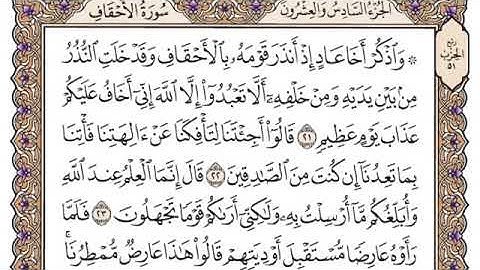 الجزء السادس والعشرون
سورة الأحقاف
ربع
الحزب
٥١
۞ وَاذْكُرْ أَخَا عَادٍ إِذْ أَنذَرَ قَوْمَهُ بِالْأَحْقَافِ وَقَدْ خَلَتِ النُّذُرُ
مِن بَيْنِ يَدَيْهِ وَمِنْ خَلْفِهِ أَلَّا تَعْبُدُوا إِلَّا اللَّهَ إِنِّي أَخَافُ عَلَيْكُمْ
عَذَابَ يَوْمٍ عَظِيمٍ ٢١ قَالُوا أَجِئْتَنَا لِتَأْفِكَنَا عَنْ ءَالِهَتِنَا فَأْتِنَا
بِمَا تَعِدُنَا إِن كُنتَ مِنَ الصَّادِقِينَ ٢٢ قَالَ إِنَّمَا الْعِلْمُ عِندَ اللَّهِ
وَأُبَلِّغُكُم مَّا أُرْسِلْتُ بِهِ وَلَٰكِنِّي أَرَىٰكُمْ قَوْمًا تَجْهَلُونَ ٢٣ فَلَمَّا
رَأَوْهُ عَارِضًا مُّسْتَقْبِلَ أَوْدِيَتِهِمْ قَالُوا هَٰذَا عَارِضٌ مُّمْطِرُنَا ۚ